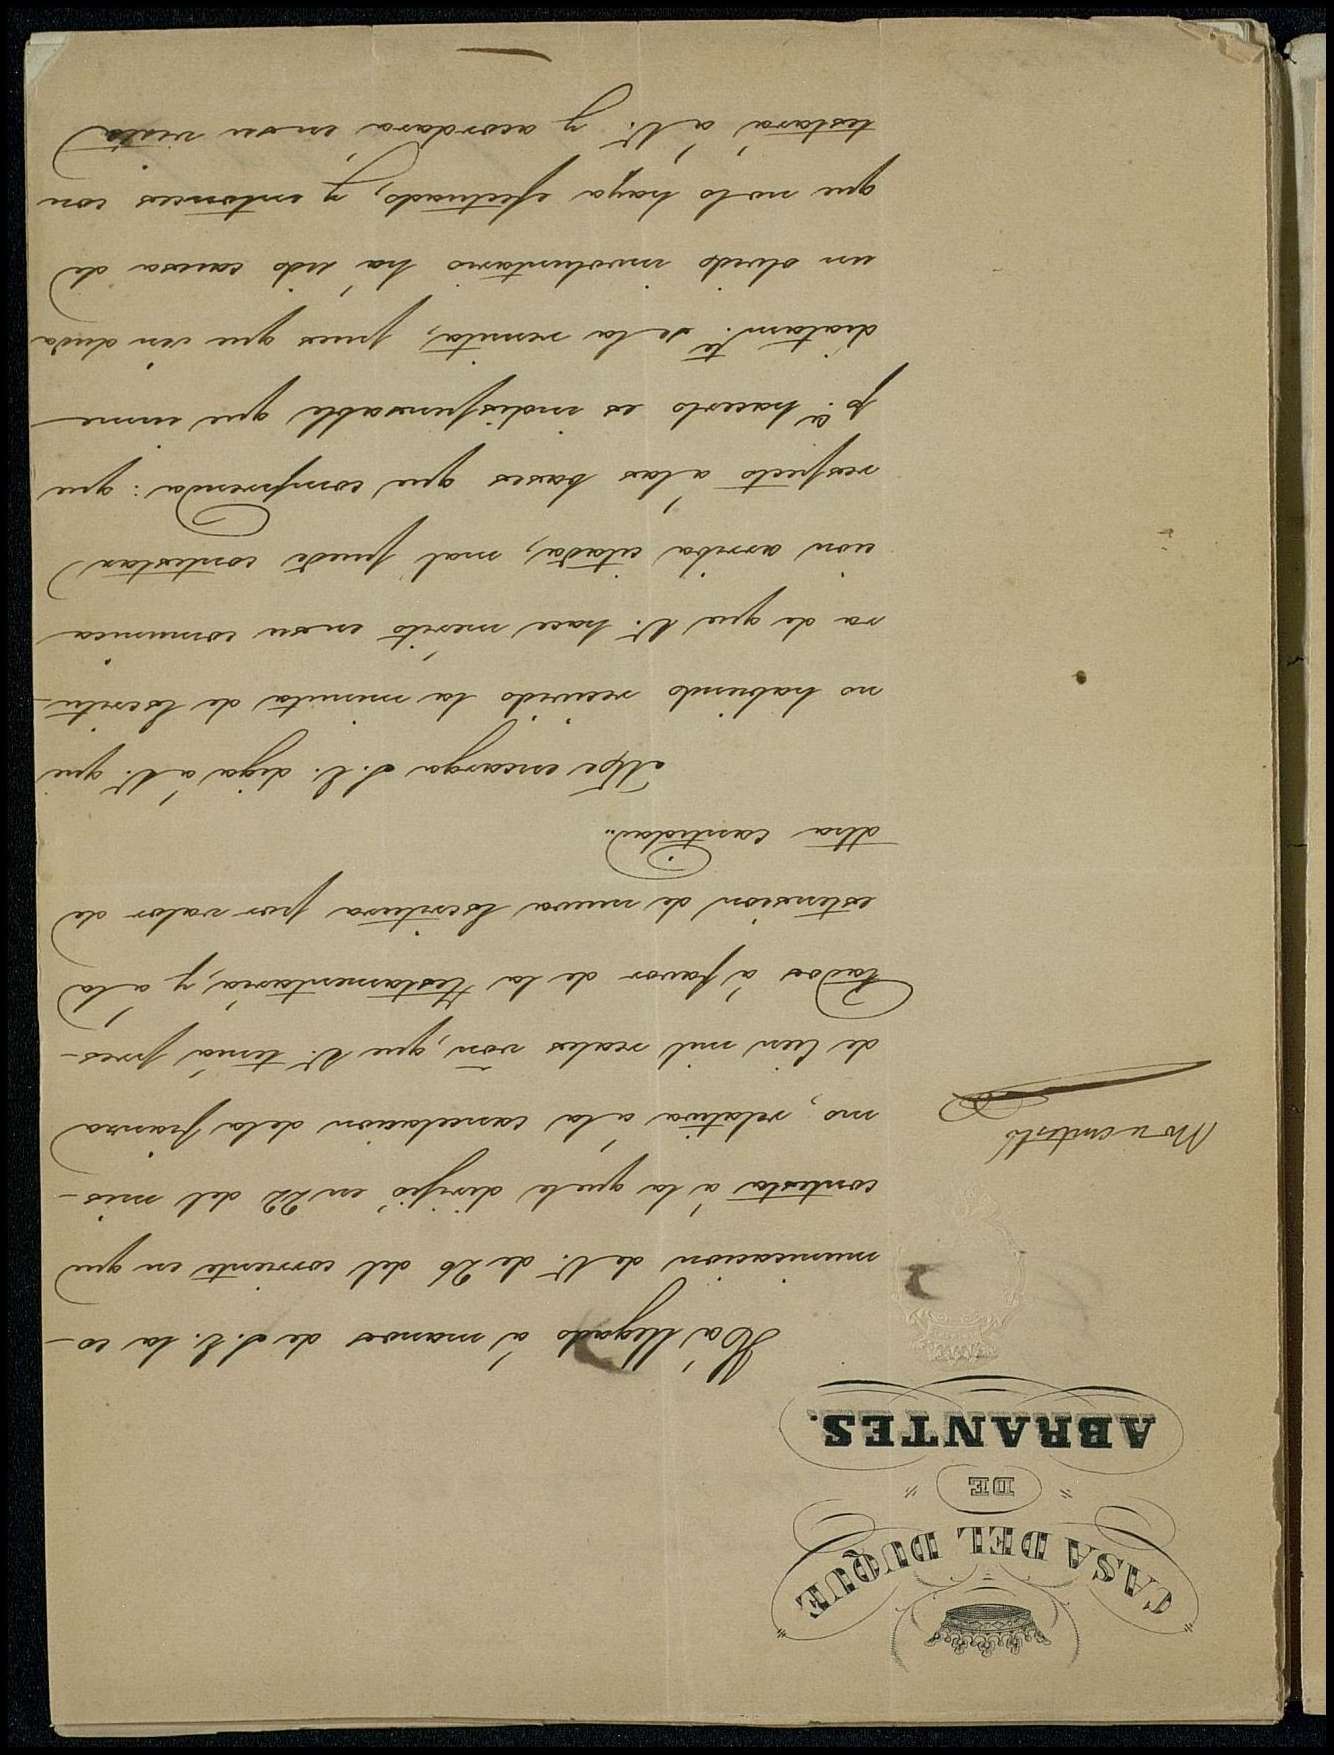 CASA DEL DUQUE
DE
ABRANTES.
Há llegado á manos de S.E. la co-
municacion de V. de 26 del corriente en que
contesta á la que le dirijió en 22 del mis-
mo, relativa á la cancelacion de la fianza
No se contestó
de Cien mil reales von, que V. tenia pres-
tados á favor de la testamentaría, y á la
estension de nueva Escritura por valor de
dha cantidad.
Me encarga S.E. diga á V. que
no habiendo recivido la minuta de Escritu-
ra de que V. hace mérito en su comunica
cion arriba citada, mal puede contestar
respecto á las bases que comprenda: que
pª hacerlo es indispensable que inme-
diatamte se la remita, pues que sin duda
un olvido involuntario há sido causa de
que no lo haya efectuado, y entonces con
testará á V. y acordara en su vista